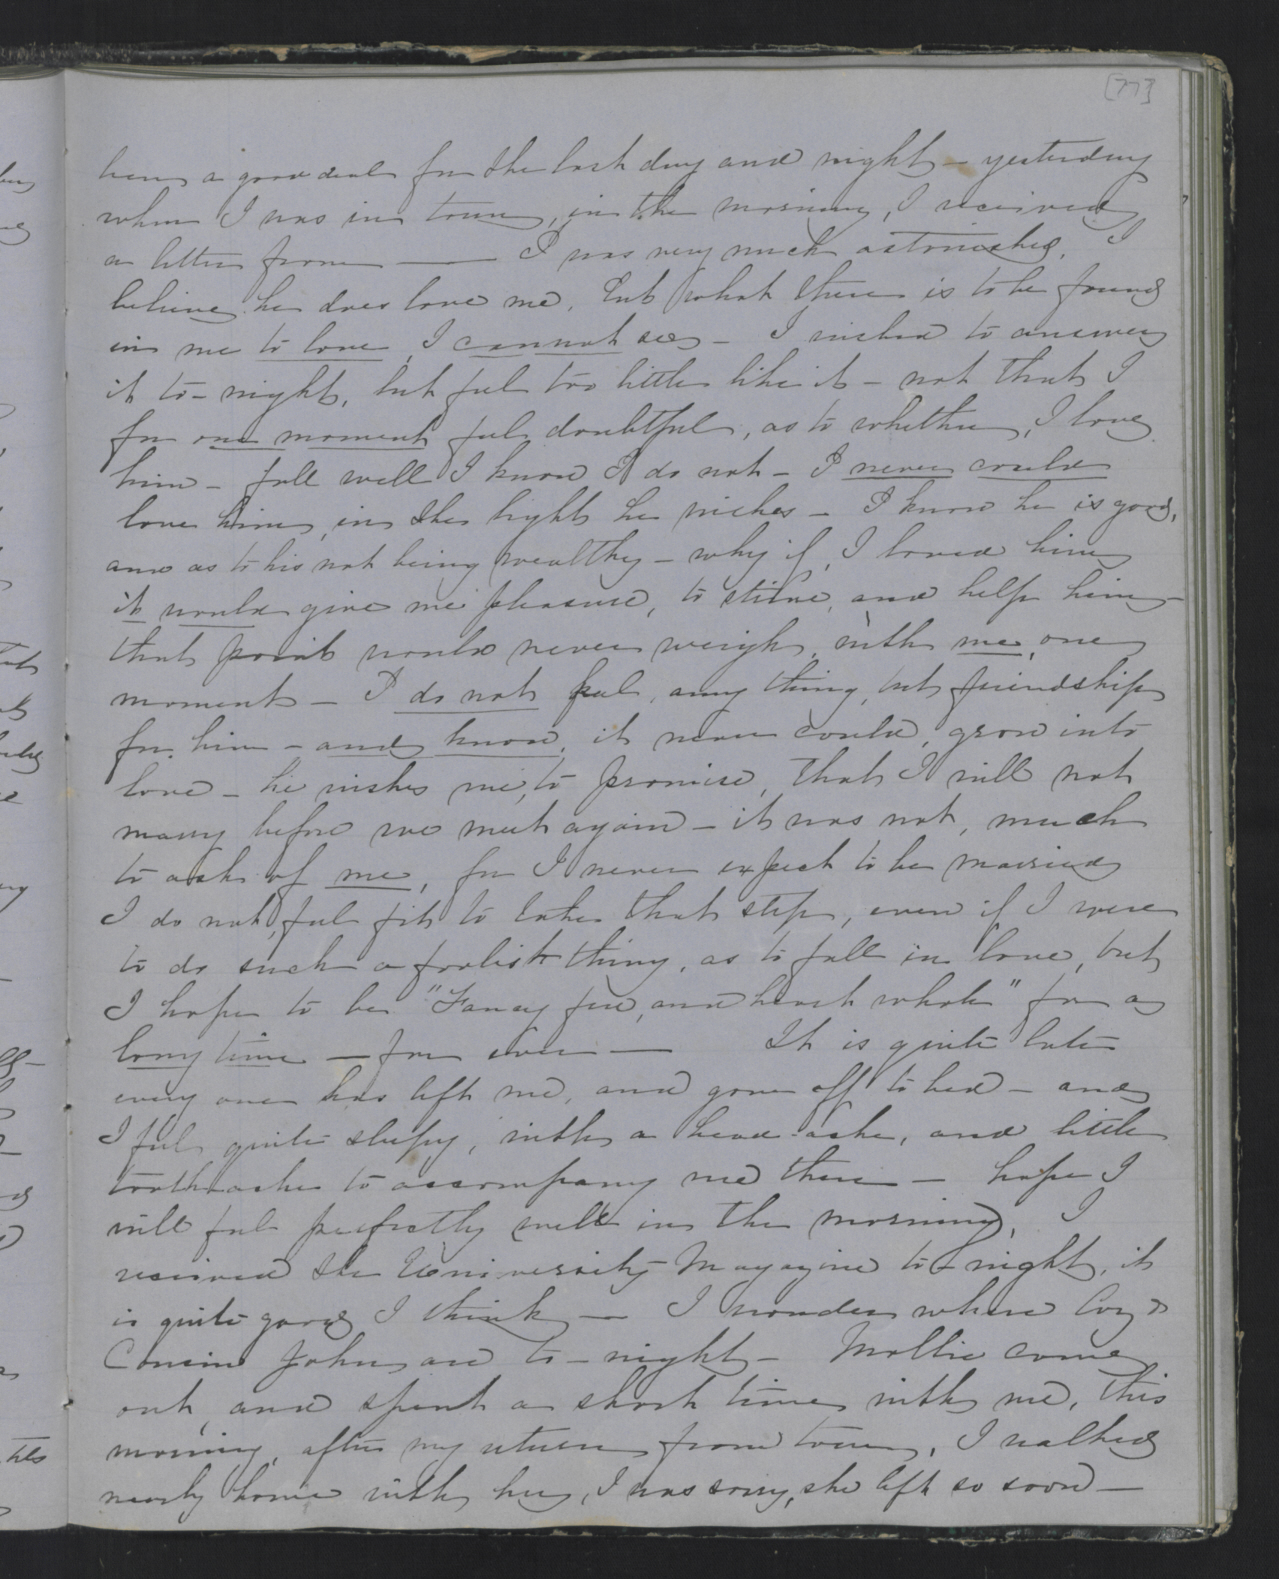 [77]
been a good deal for the last day and night - yesterday
when I was in town, in the morning, I received
a letter from —— I was very much astonished, I
believe he does love me, but what there is to be found
in me to love, I cannot see - I wished to answer
it to-night, but feel too little like it - not that I
for one moment feel doubtful, as to whether, I love
him - full well I know I do not - I never could
love him, in the light he wishes - I know he is good,
and as to his not being wealthy - why if, I loved him
it would give me pleasure, to strive, and help him -
that point would never weigh, with me, one
moment - I do not feel, any thing, but friendship
for him - and know, it never could, grow into
love - he wishes me, to promise, that I will not
marry before we meet again - it was not, much
to ask of me, for I never expect to be married
I do not, feel fit to take that step, even if I were
to do such a foolish thing, as to fall in love, but
I hope to be "Fancy free, and heart whole" for a
long time — for ever — It is quite late
every one has left me, and gone off to bed - and
I feel quite sleepy, with a head-ache, and little
toothache to accompany me there — hope I
will feel perfectly well in the morning, I
received the University Magazine to-night, it
is quite good I think — I wonder where &
Cousin John, are to-night - Mollie came
out, and spent a short time with me, this
morning, after my return from town, I walked
nearly home with her, I was sorry, she left so soon —